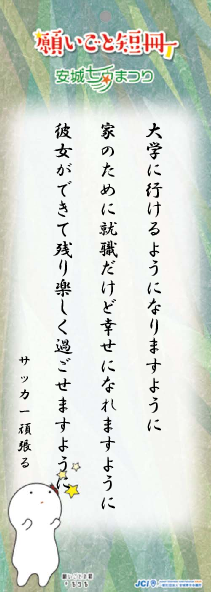 願いごと短冊
安城七夕まつり
大学に行けるようになりますように
家のために就職だけど幸せになれますように
彼女ができて残り楽しく過ごせますように
サッカー頑張る
JCI